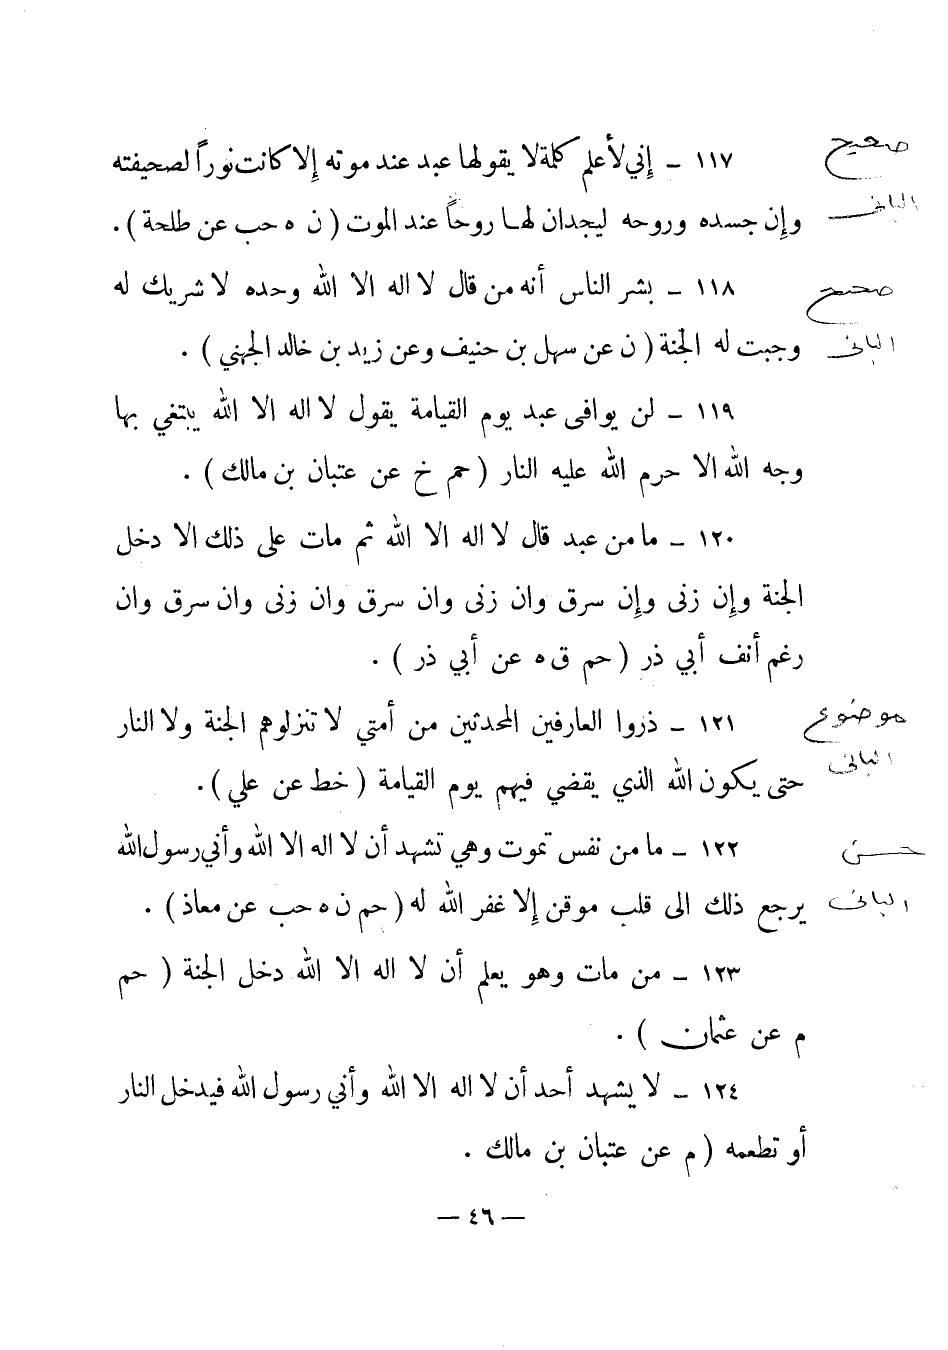 ١١٧ - إني لأعلم كلمة لا يقولها عبد عند موته إلا كانت نوراً لصحيفته
صحيح
وإن جسده وروحه ليجدان لها روحاً عند الموت ( ن ه حب عن طلحة ) .
البانى
١١٨ - بشر الناس أنه من قال لا اله الا الله وحده لا شريك له
صحيح
وجبت له الجنة ( ن عن سهل بن حنيف وعن زيد بن خالد الجهني ) .
البانى
١١٩ - لن يوافى عبد يوم القيامة يقول لا اله الا الله يبتغي بها
وجه الله الا حرم الله عليه النار ( حم خ عن عتبان بن مالك ) .
١٢٠ - ما من عبد قال لا اله الا الله ثم مات على ذلك الا دخل
الجنة وإن زنى وإن سرق وان زنى وان سرق وان زنى وان سرق وان
رغم أنف أبي ذر ( حم ق ه عن أبي ذر ) .
١٢١ - ذروا العارفين المحدثين من أمتي لا تنزلوهم الجنة ولا النار
موضوع
حتى يكون الله الذي يقضي فيهم يوم القيامة ( خط عن علي ) .
البانى
١٢٢ - ما من نفس تموت وهي تشهد أن لا اله الا الله وأني رسول الله
حسن
يرجع ذلك الى قلب موقن إلا غفر الله له ( حم ن ه حب عن معاذ ) .
البانى
١٢٣ - من مات وهو يعلم أن لا اله الا الله دخل الجنة ( حم
م عن عثمان ) .
١٢٤ - لا يشهد أحد أن لا اله الا الله وأني رسول الله فيدخل النار
أو تطعمه ( م عن عتبان بن مالك .
— ٤٦ —